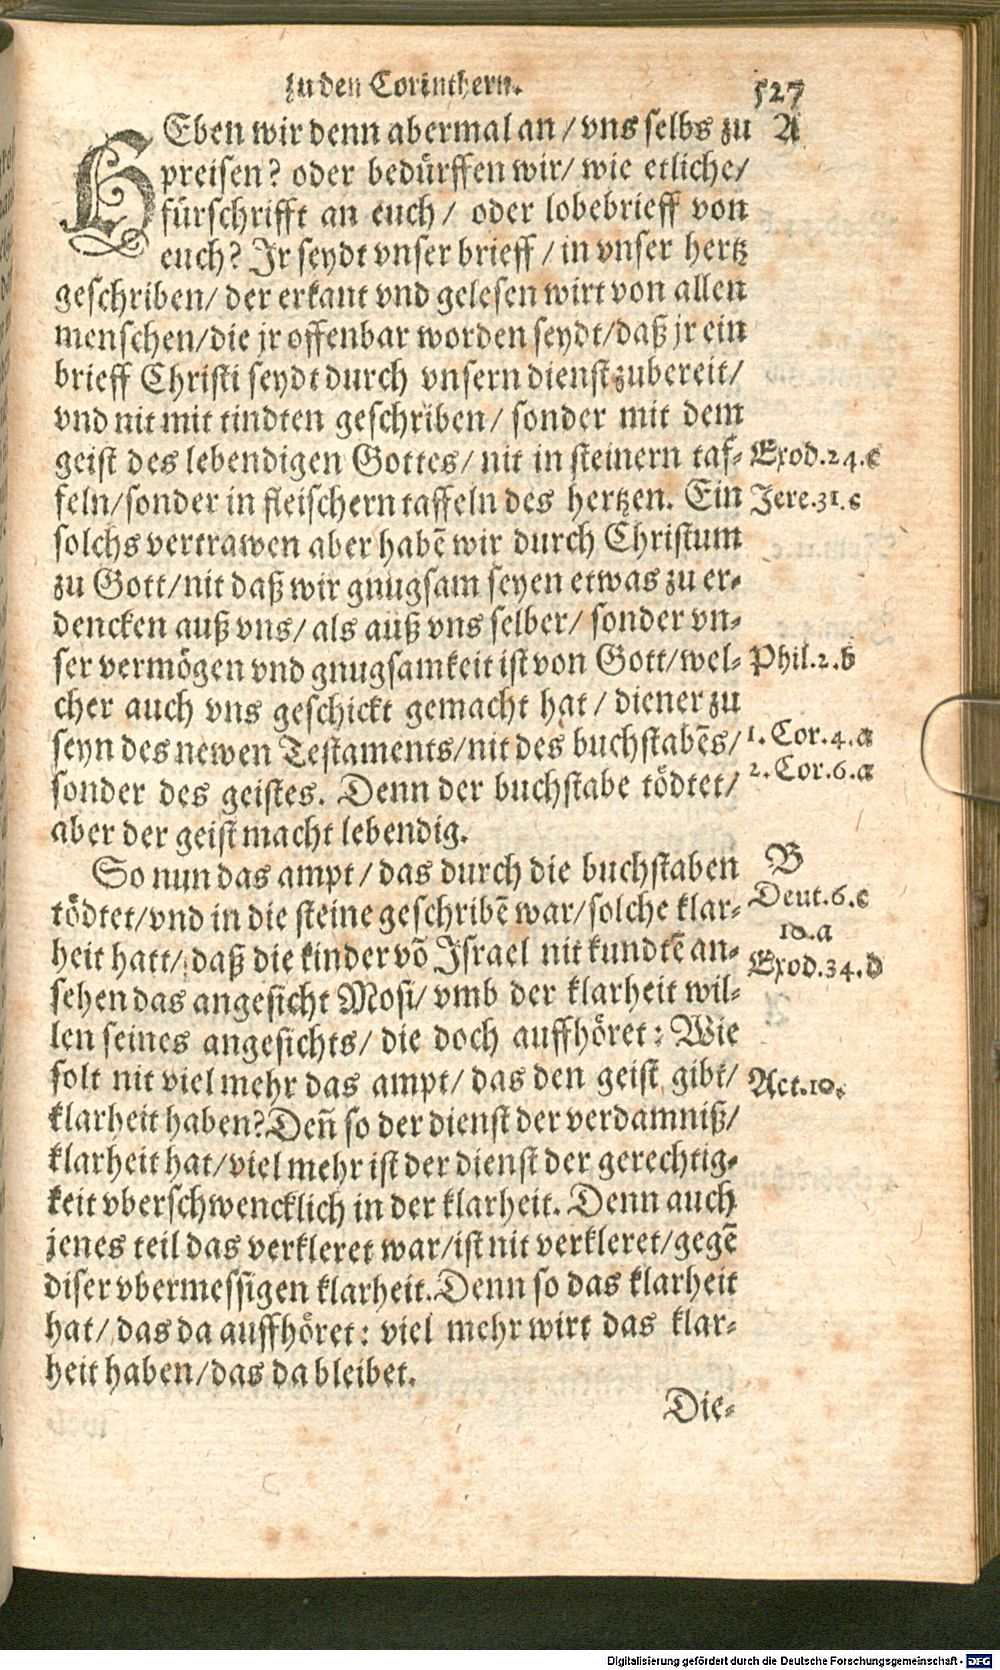 zu den Corinthern. 527
HEben wir denn abermal an / vns selbs zu A
preisen? oder bedürffen wir / wie etliche /
fürschrifft an euch / oder lobebrieff von
euch? Ir seydt vnser brieff / in vnser hertz
geschriben / der erkant vnd gelesen wirt von allen
menschen / die jr offenbar worden seydt / daß jr ein
brieff Christi seydt durch vnsern dienst zubereit /
vnd nit mit tindten geschriben / sonder mit dem
geist des lebendigen Gottes / nit in steinern taf- Exod.24.c
feln / sonder in fleischern taffeln des hertzen. Ein Jere.31.c
solchs vertrawen aber habē wir durch Christum
zu Gott / nit daß wir gnugsam seyen etwas zu er-
dencken auß vns / als auß vns selber / sonder vn-
ser vermögen vnd gnugsamkeit ist von Gott / wel- Phil.2.b
cher auch vns geschickt gemacht hat / diener zu
seyn des newen Testaments / nit des buchstabēs / 1.Cor.4.a
sonder des geistes. Denn der buchstabe tödtet / 2.Cor.6.a
aber der geist macht lebendig.
So nun das ampt / das durch die buchstaben B
tödtet / vnd in die steine geschribē war / solche klar- Deut.6.c
heit hatt / daß die kinder vō Israel nit kundtē an- 10.a
sehen das angesicht Mosi / vmb der klarheit wil- Exod.34.d
len seines angesichts / die doch auffhöret: Wie
solt nit viel mehr das ampt / das den geist gibt / Act.10.
klarheit haben? Deñ so der dienst der verdamniß /
klarheit hat / viel mehr ist der dienst der gerechtig-
keit vberschwencklich in der klarheit. Denn auch
jenes teil das verkleret war / ist nit verkleret / gegē
diser vbermessigen klarheit. Denn so das klarheit
hat / das da auffhöret: viel mehr wirt das klar-
heit haben / das da bleibet.
Die-
Digitalisierung gefördert durch die Deutsche Forschungsgemeinschaft - DFG